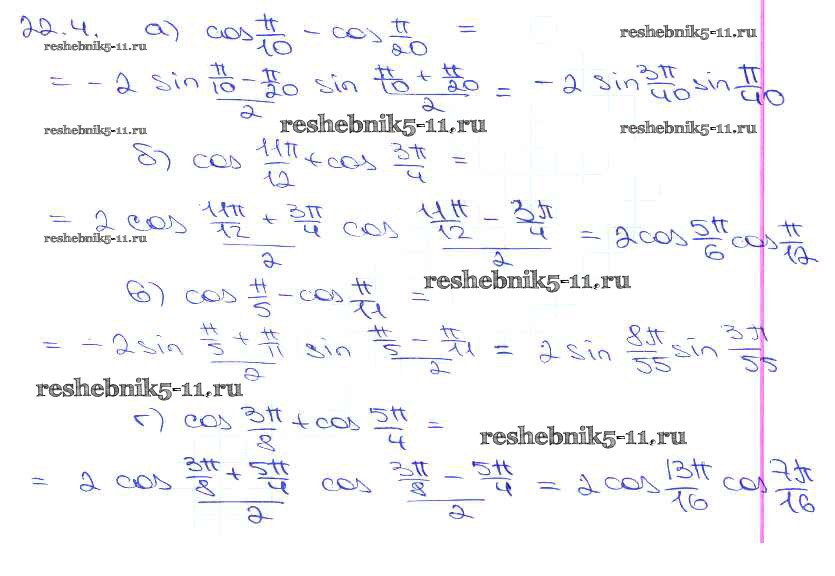 22.4. а) cos π/10 - cos π/20 =
reshebnik5-11.ru reshebnik5-11.ru
= -2 sin (π/10 - π/20)/2 sin (π/10 + π/20)/2 = -2 sin 3π/40 sin π/40
reshebnik5-11.ru reshebnik5-11.ru reshebnik5-11.ru
б) cos 11π/12 + cos 3π/4 =
= 2 cos (11π/12 + 3π/4)/2 cos (11π/12 - 3π/4)/2 = 2 cos 5π/6 cos π/12
reshebnik5-11.ru
в) cos π/5 - cos π/11 =
reshebnik5-11.ru
= -2 sin (π/5 + π/11)/2 sin (π/5 - π/11)/2 = 2 sin 8π/55 sin 3π/55
reshebnik5-11.ru
г) cos 3π/8 + cos 5π/4 =
reshebnik5-11.ru
= 2 cos (3π/8 + 5π/4)/2 cos (3π/8 - 5π/4)/2 = 2 cos 13π/16 cos 7π/16